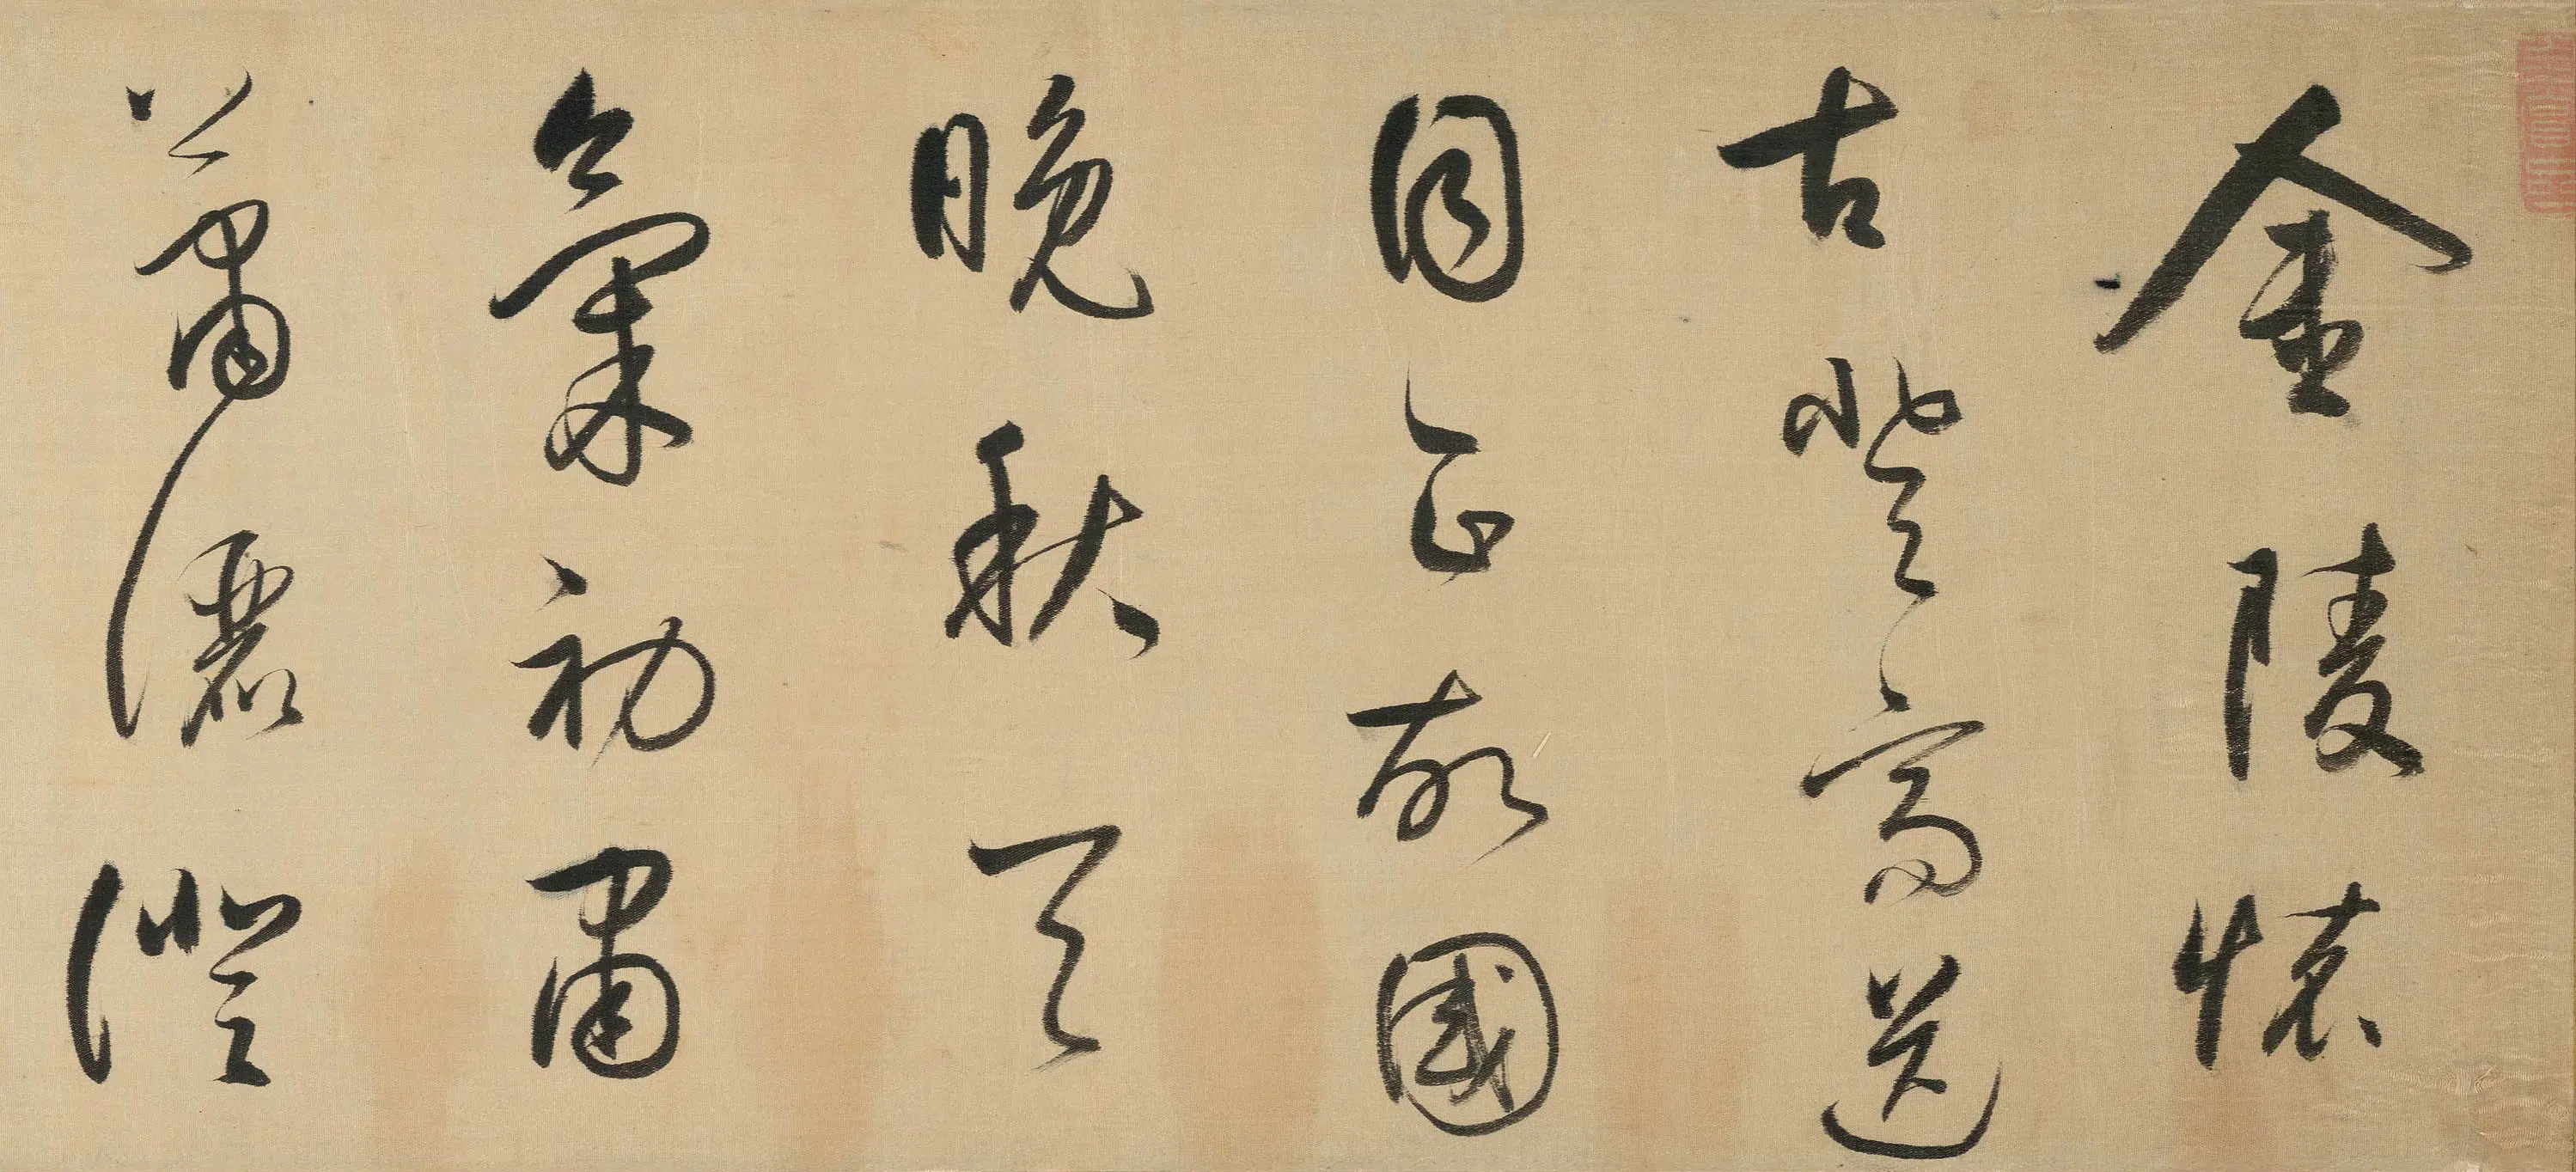 金陵懷
古登高送
目正故國
晚秋天
氣初肅
瀟灑澄